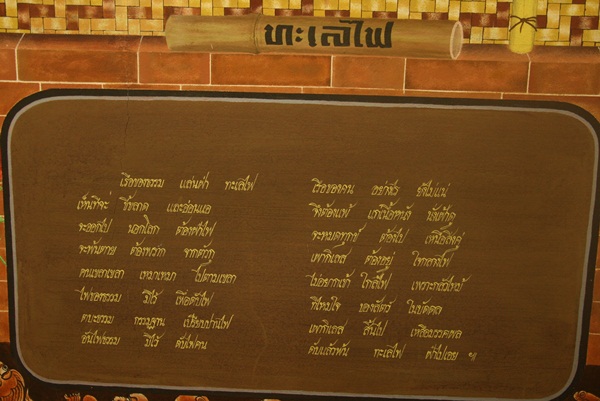 ทะเลไฟ
เรือของธรรม แล่นค้ำ ทะเลไฟ
เห็นที่จะ ขี้ขลาด และอ่อนแอ
จะออกไป นอกโลก ต้องฝ่าไฟ
จะพ้นตาย ต้องพราก จากตัวกู
คนเขลาเขลา เหมาเหมา ไปตามเขลา
ไฟของธรรม มีไว้ เพื่อดับไฟ
ตบะธรรม กรรมฐาน เปรียบปานไฟ
อันไฟธรรม มีไว้ ดับไฟคน
เรือของคน อย่างไร ยังไม่แน่
จึงต้องแพ้ แก่เนื้อหนัง นั่งคุดคู้
จะหมดทุกข์ ต้องไป เหนือไฟอยู่
เผากิเลส ต้องอยู่ ในกลางไฟ
ไม่อยากเข้า ใกล้ไฟ เพราะกลัวไหม้
ที่ไหม้ใจ ของสัตว์ ในบัดดล
เผากิเลส สิ้นไป เหลือมรรคผล
ดับแล้วพ้น ทะเลไฟ ฝ่าไปเอย ฯ